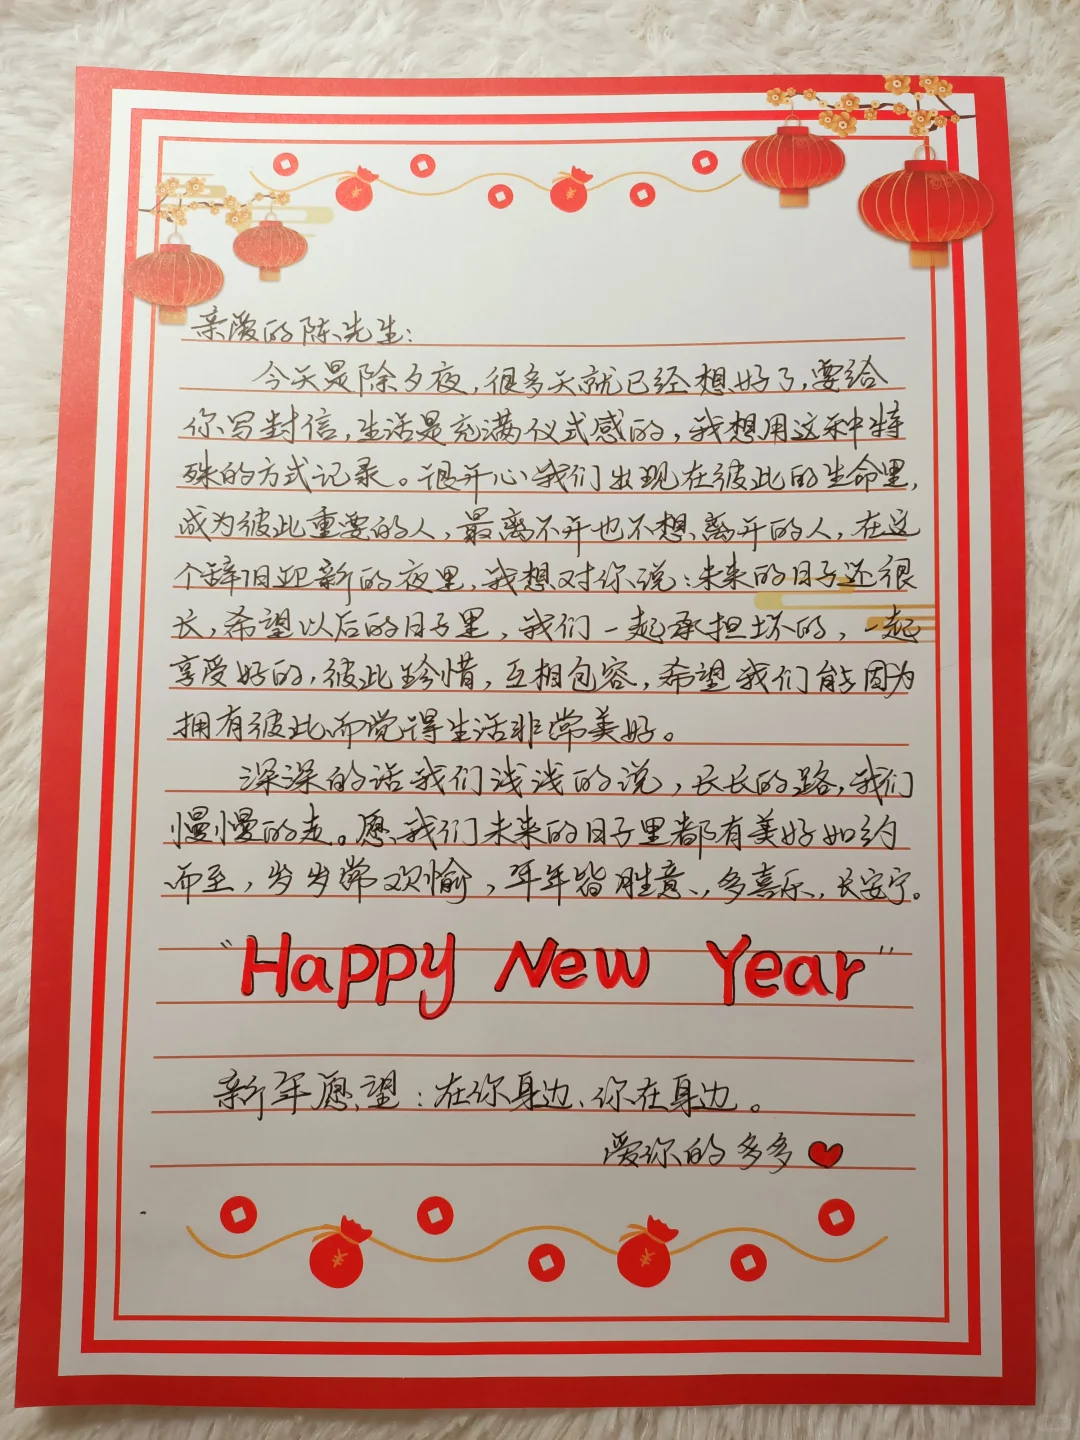 亲爱的陈先生：
今天是除夕夜，很多天就已经想好了，要给
你写封信，生活是充满仪式感的，我想用这种特
殊的方式记录。很开心我们出现在彼此的生命里，
成为彼此重要的人，最离不开也不想离开的人，在这
个辞旧迎新的夜里，我想对你说：未来的日子还很
长，希望以后的日子里，我们一起承担坏的，一起
享受好的，彼此珍惜，互相包容，希望我们能因为
拥有彼此而觉得生活非常美好。
深深的话我们浅浅的说，长长的路，我们
慢慢的走。愿我们未来的日子里都有美好如约
而至，岁岁常欢愉，年年皆胜意，多喜乐，长安宁。
"Happy New Year"
新年愿望：在你身边、你在身边。
爱你的多多